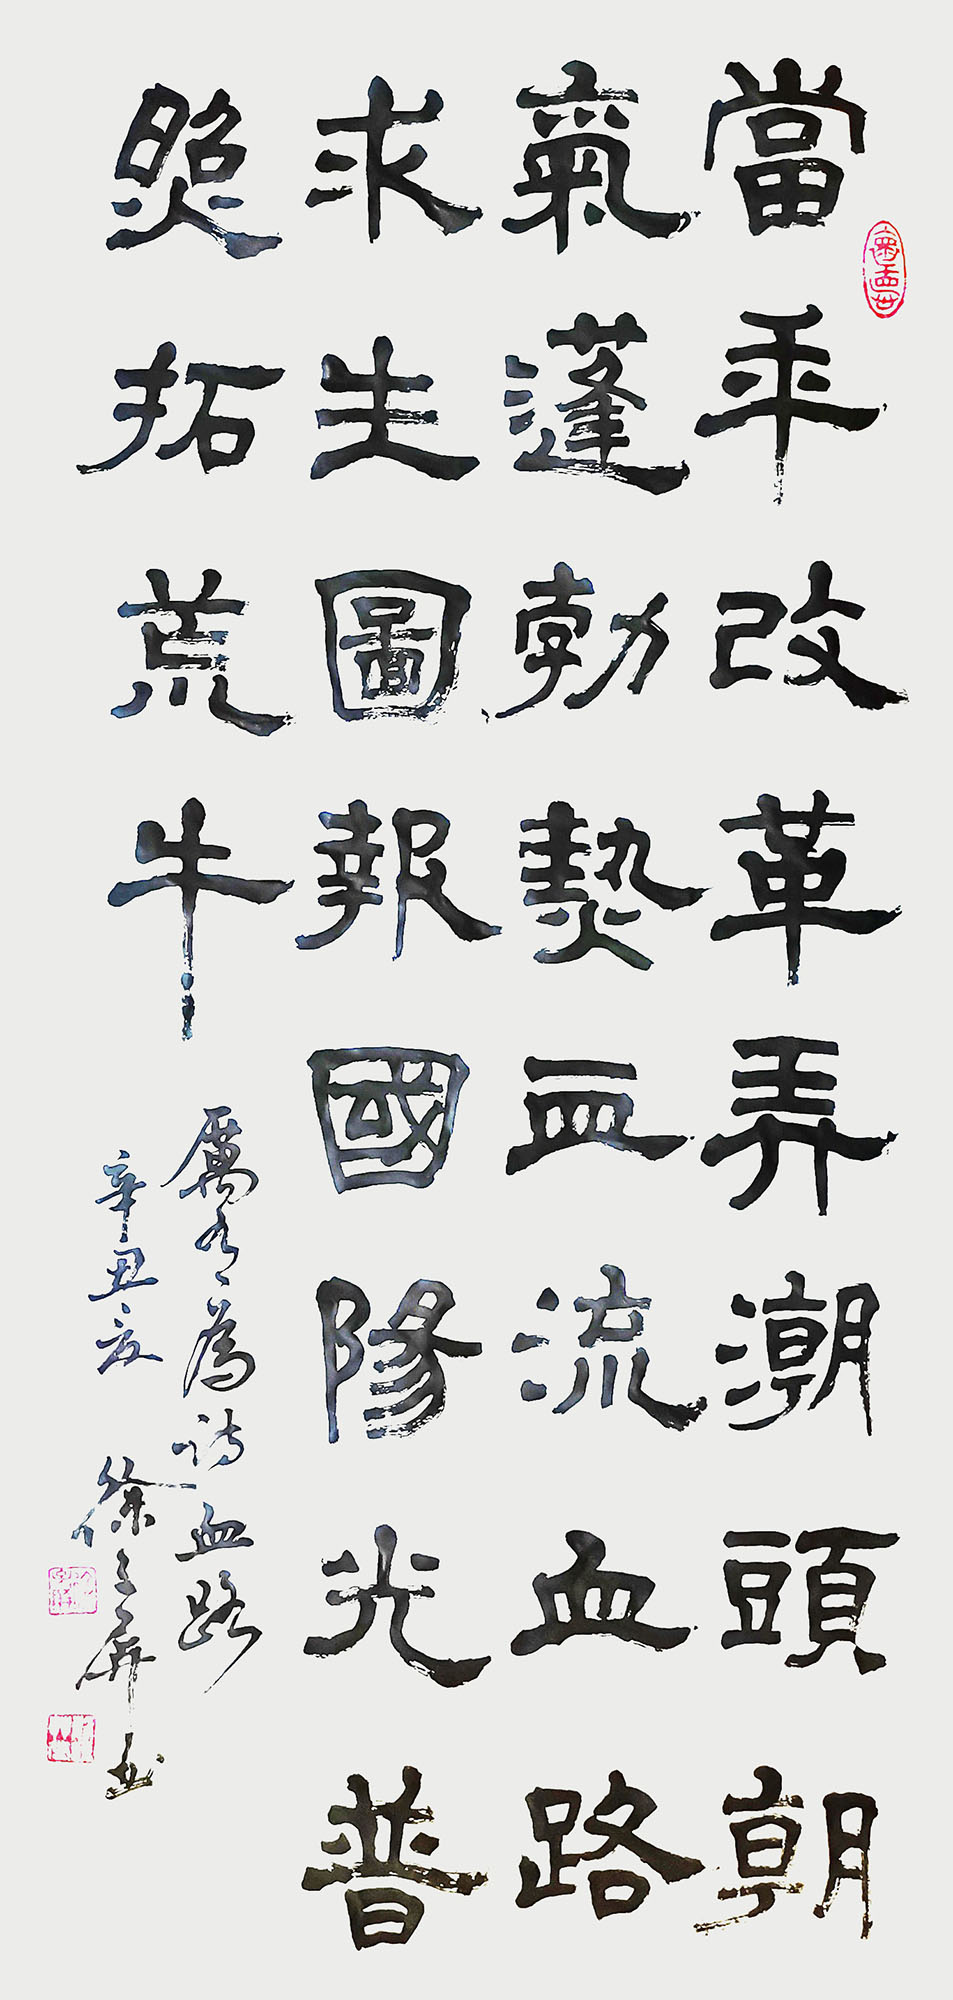 當年改革弄潮頭朝
氣蓬勃熱血流血路
求生圖報國陽光普
照拓荒牛
厲有為詩血路
辛丑夏
徐之屏書